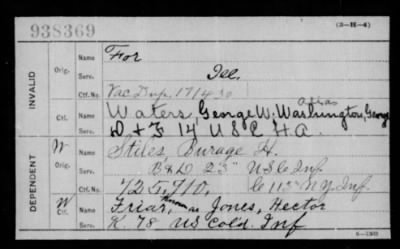 938369
(3-H-4)
INVALID
Orig.
Name
For
Serv.
See.
Ctf. No.
Vac Dup. 17/430
Ctf.
Name
Waters, George W. alias Washington, George
Serv.
D & F 14 U S C H A.
DEPENDENT
W
Orig.
Name
Stiles, Burage H.
Serv.
B & D 23" US C Inf
Ctf. No.
725,710, C 115" N Y Inf.
W
Ctf.
Name
Friar, known as Jones, Hector
Serv.
K 78 US Cold. Inf